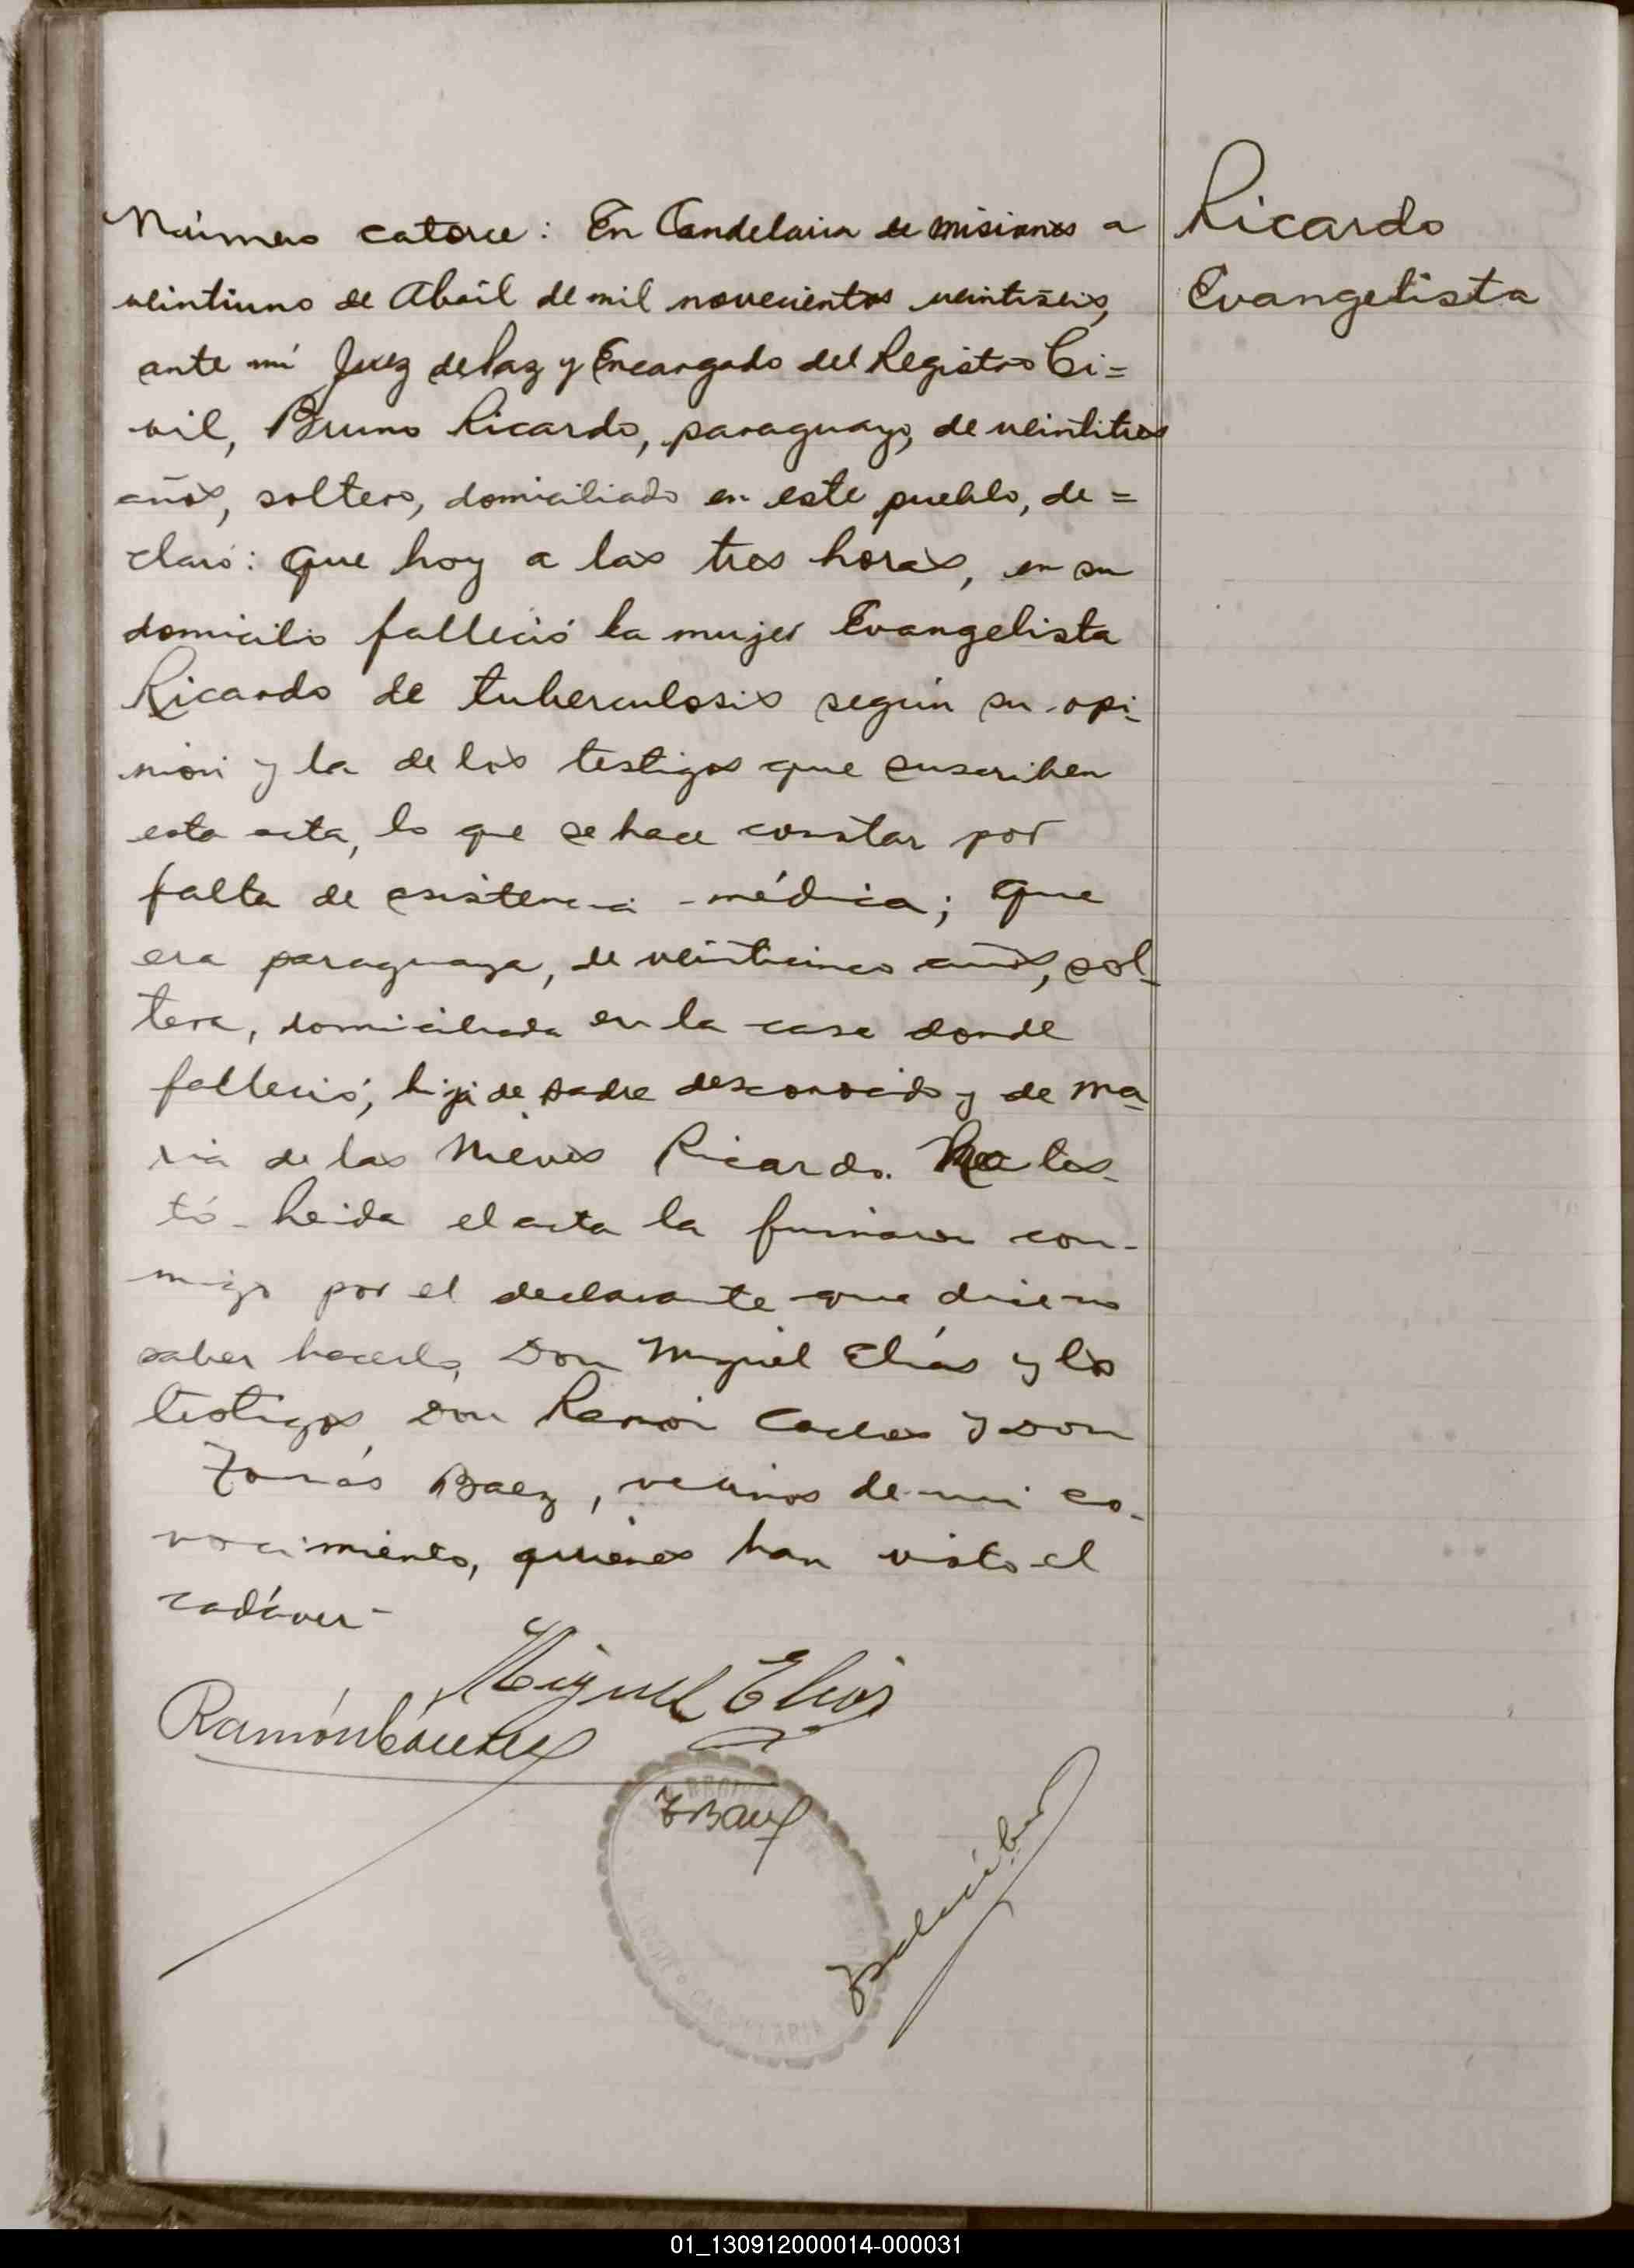 Número catorce: En Candelaria de Misiones a
veintiuno de Abril de mil novecientos veintiseis,
ante mí Juez de Paz y Encargado del Registro Ci=
vil, Bruno Ricardo, paraguayo, de veintitres
años, soltero, domiciliado en este pueblo, de=
claró: Que hoy a las tres horas, en su
domicilio falleció la mujer Evangelista
Ricardo de tuberculosis según su opi-
nión y la de los testigos que suscriben
esta acta, lo que se hace constar por
falta de asistencia médica; que
era paraguaya, de veinticinco años, sol-
tera, domiciliada en la casa donde
falleció, hija de padre desconocido y de Ma-
ria de las Nieves Ricardo. No tes-
tó- Leida el acta la firmaron con-
migo por el declarante que dice no
saber hacerlo, Don Miguel Elías y los
testigos Don Ramón y Don
Tomás Baez, vecinos de mi co-
nocimiento, quienes han visto el
cadáver-
Ricardo
Evangelista
Miguel Elias
Ramón
TBaez
CANDELARIA
01_130912000014-000031